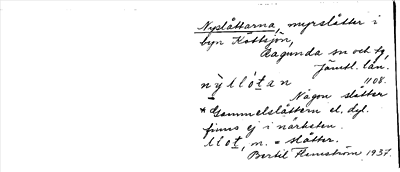 Nyslåttarna, myrslåtter i
byn Köttsjön,
Ragunda sn och tg,
Jämtl. län.
nỳllótan 1108.
Någon slåtter
*Gammelslåttern el. dyl.
finns ej i närheten.
llot, m. = slåtter.
Bertil Flemström 1937.